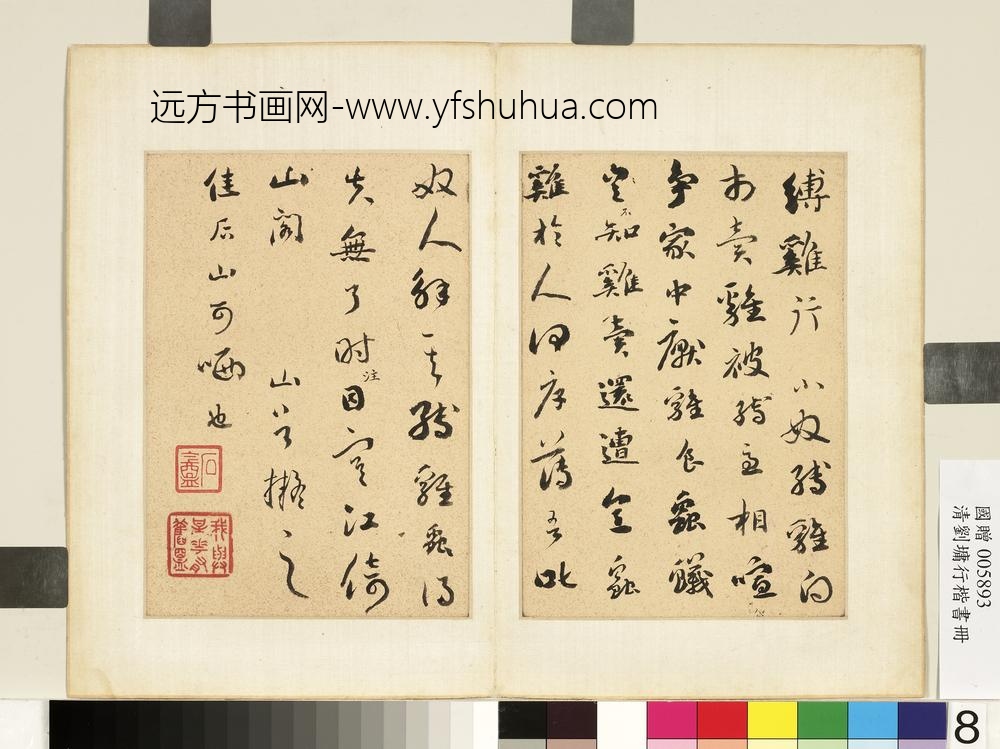 远方书画网-www.yfshuhua.com
縛雞行 小奴縛雞向
市賣雞被縛急相喧
爭家中厭雞食蟲蟻
豈不知雞賣還遭烹蟲
雞於人何厚薄吾叱
奴人解其縛雞蟲得
失無了時注目寒江倚
山閣 山谷擬之
佳后山可哂也
石盦
國贈 005893
清劉墉行楷書冊
8